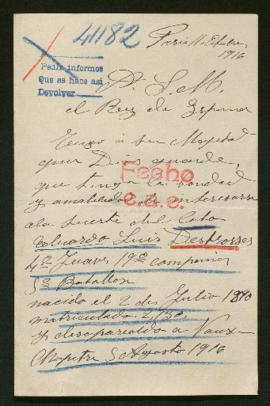 41182
Paris 11 Octubre
1916
Pedir informes
Que se hace así
Devolver
A. S. M.
el Rey de España
Ruego a su Majestad
que Dios guarde,
que tenga la bondad
y amabilidad de interesarse
a la suerte del Cabo
Eduardo Luis Desfosses
4º Zuavos 19ª compañia
5º Batallon
nacido el 2 de Julio 1890
matriculado
y desaparecido a Vaux-
Chapitre 5 Agosto 1916
Fecho